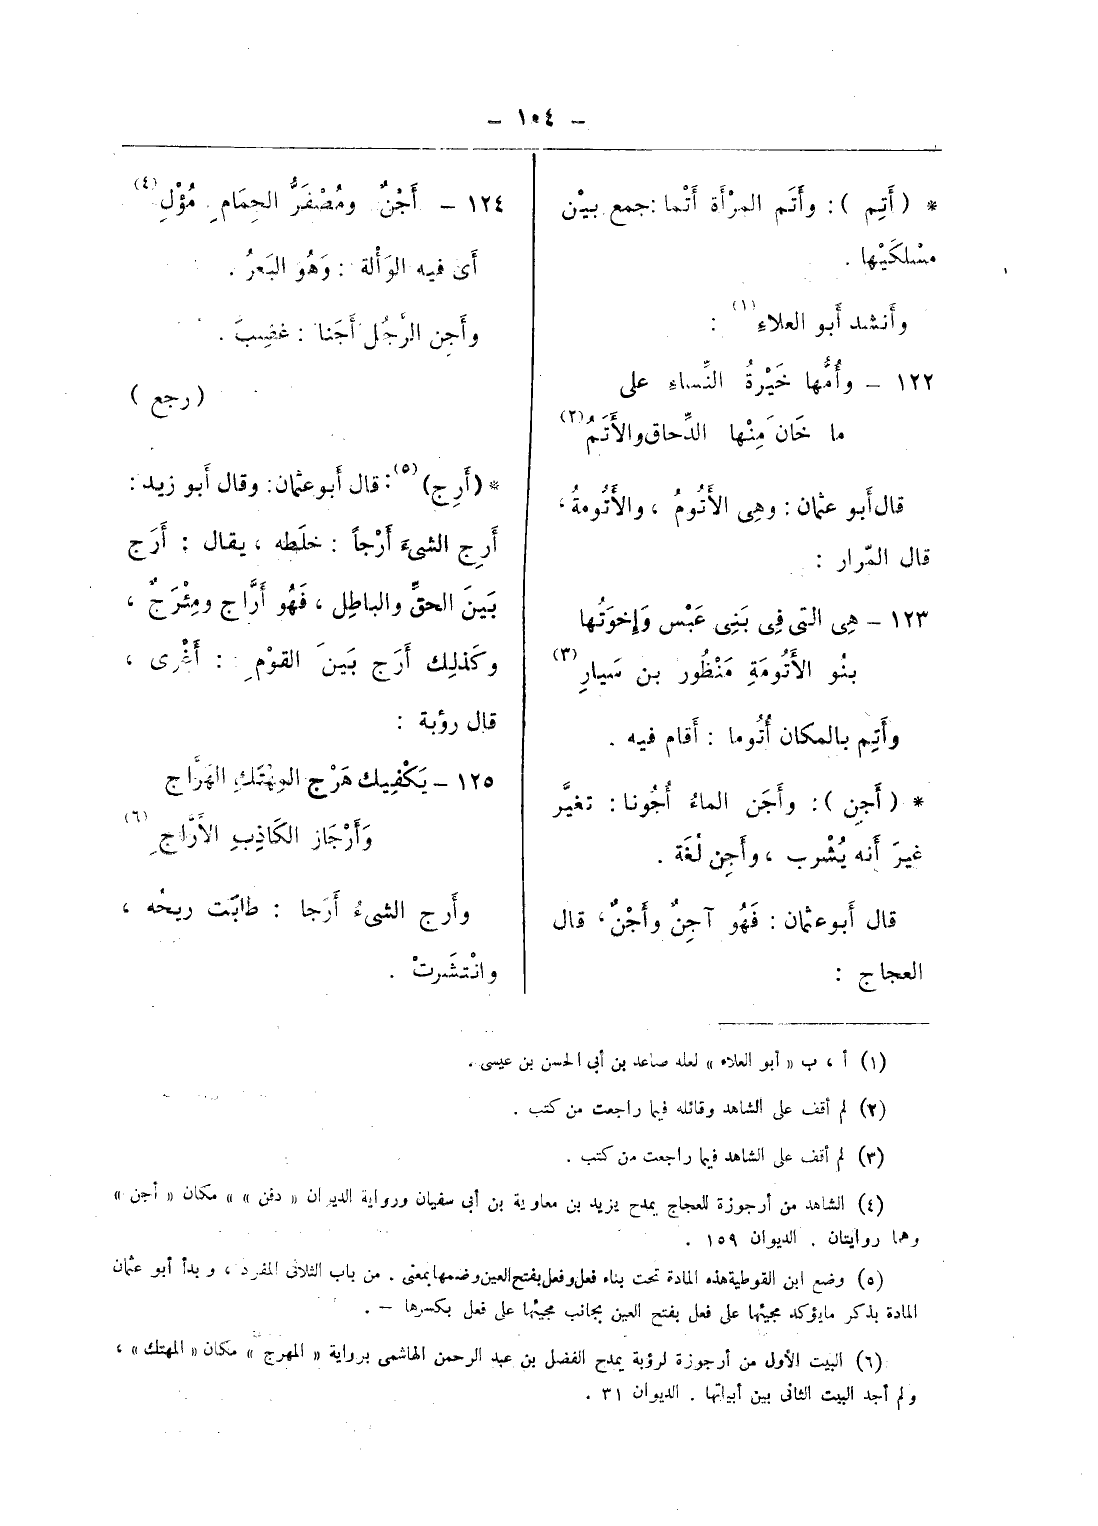 – ١٠٤ –
* ( أَتِم ) : وأَتَم المرْأة أَتْما : جمع بيْن
مسْلكَيْها .
وأَنشد أَبو العلاءِ (١) :
١٢٢ – وأُمُّها خَيْرةُ النِّساءِ على
ما خَان مِنْها الدِّحاق والأَتَمُ (٢)
قال أَبو عثمان : وهى الأَتُومُ ، والأَتُومةُ ،
قال المّرار :
١٢٣ – هِى التى فِى بَنِى عَبْس وَإِخوَتُها
بنُو الأَتُومَةِ مَنْظُور بن سَيارِ (٣)
وأَتِم بالمكان أُتُوما : أَقام فيه .
* ( أَجن ) : وأَجَن الماءُ أُجُونا : تغيَّر
غيرَ أَنه يُشْرب ، وأَجِن لُغَة .
قال أَبو عثمان : فَهُو آجِنٌ وأَجْنٌ ، قال
العجاج :
١٢٤ – أَجْنٌ ومُصْفَرُّ الحِمَامِ مُؤْلِ (٤)
أَى فيه الوَأْلة : وَهُو البَعرُ .
وأَجِن الرَّجُل أَجَنا : غضِبَ .
( رجع )
* (أَرِج) (٥) : قال أَبو عثمان : وقال أَبو زيد :
أَرج الشىءَ أَرْجاً : خلَطه ، يقال : أَرَج
بَينَ الحقِّ والباطِل ، فَهُو أَرَّاج ومِئْرَجٌ ،
وكَذلِك أَرَج بَينَ القوْمِ : أَغْرى ،
قال رؤبة :
١٢٥ – يَكْفِيك هَرْج المِهْتَكِ الهَرَّاج
وَأَرْجَاز الكَاذِبِ الأَرَّاجِ (٦)
وأَرج الشىءُ أَرَجا : طابَت ريحُه ،
وانْتشَرتْ .
(١) أ ، ب « أبو العلاء » لعله صاعد بن أبى الحسن بن عيسى .
(٢) لم أقف على الشاهد وقائله فيما راجعت من كتب .
(٣) لم أقف على الشاهد فيما راجعت من كتب .
(٤) الشاهد من أرجوزة للعجاج يمدح يزيد بن معاوية بن أبى سفيان ورواية الديوان « دفن » مكان « أجن »
وهما روايتان . الديوان ١٥٩ .
(٥) وضع ابن القوطية هذه المادة تحت بناء فعل وفعل بفتح العين وضمها بمعنى . من باب الثلاثى المفرد ، و بدأ أبو عثمان
المادة بذكر ما يؤكد مجيئها على فعل بفتح العين بجانب مجيئها على فعل بكسرها – .
(٦) البيت الأول من أرجوزة لرؤبة يمدح الفضل بن عبد الرحمن الهاشمى برواية « المهرج » مكان « المهتك » ،
ولم أجد البيت الثانى بين أبياتها . الديوان ٣١ .